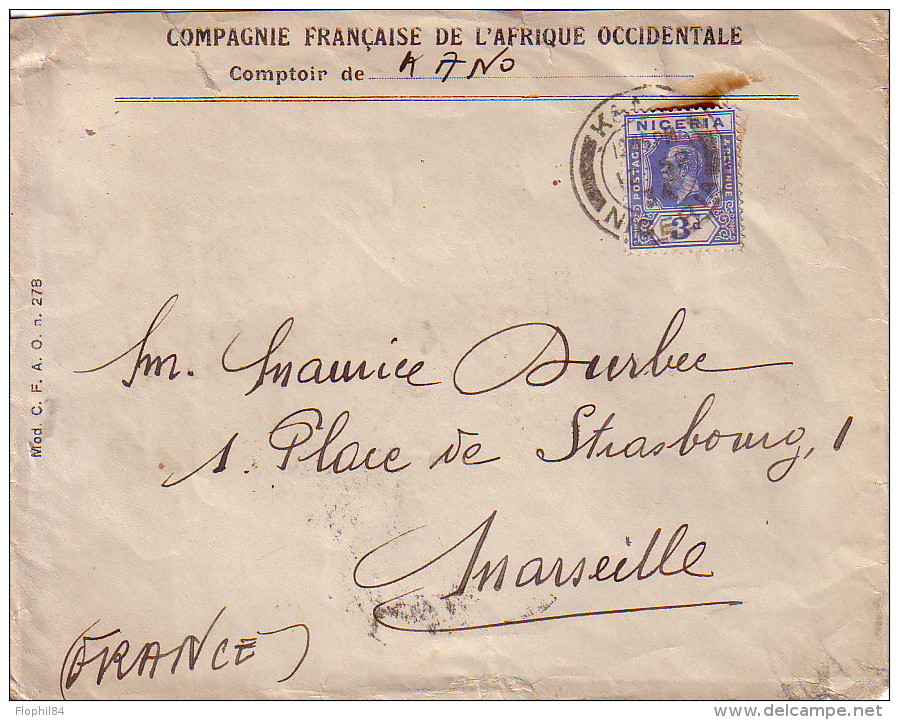 COMPAGNIE FRANÇAISE DE L'AFRIQUE OCCIDENTALE
Comptoir de KANO
NIGERIA
POSTAGE & REVENUE
3d
NIGERIA
Mod. C. F. A. O. n. 278
M. Maurice Durbec
1. Place de Strasbourg, 1
Marseille
(FRANCE)
Flophil84
delcampe.net